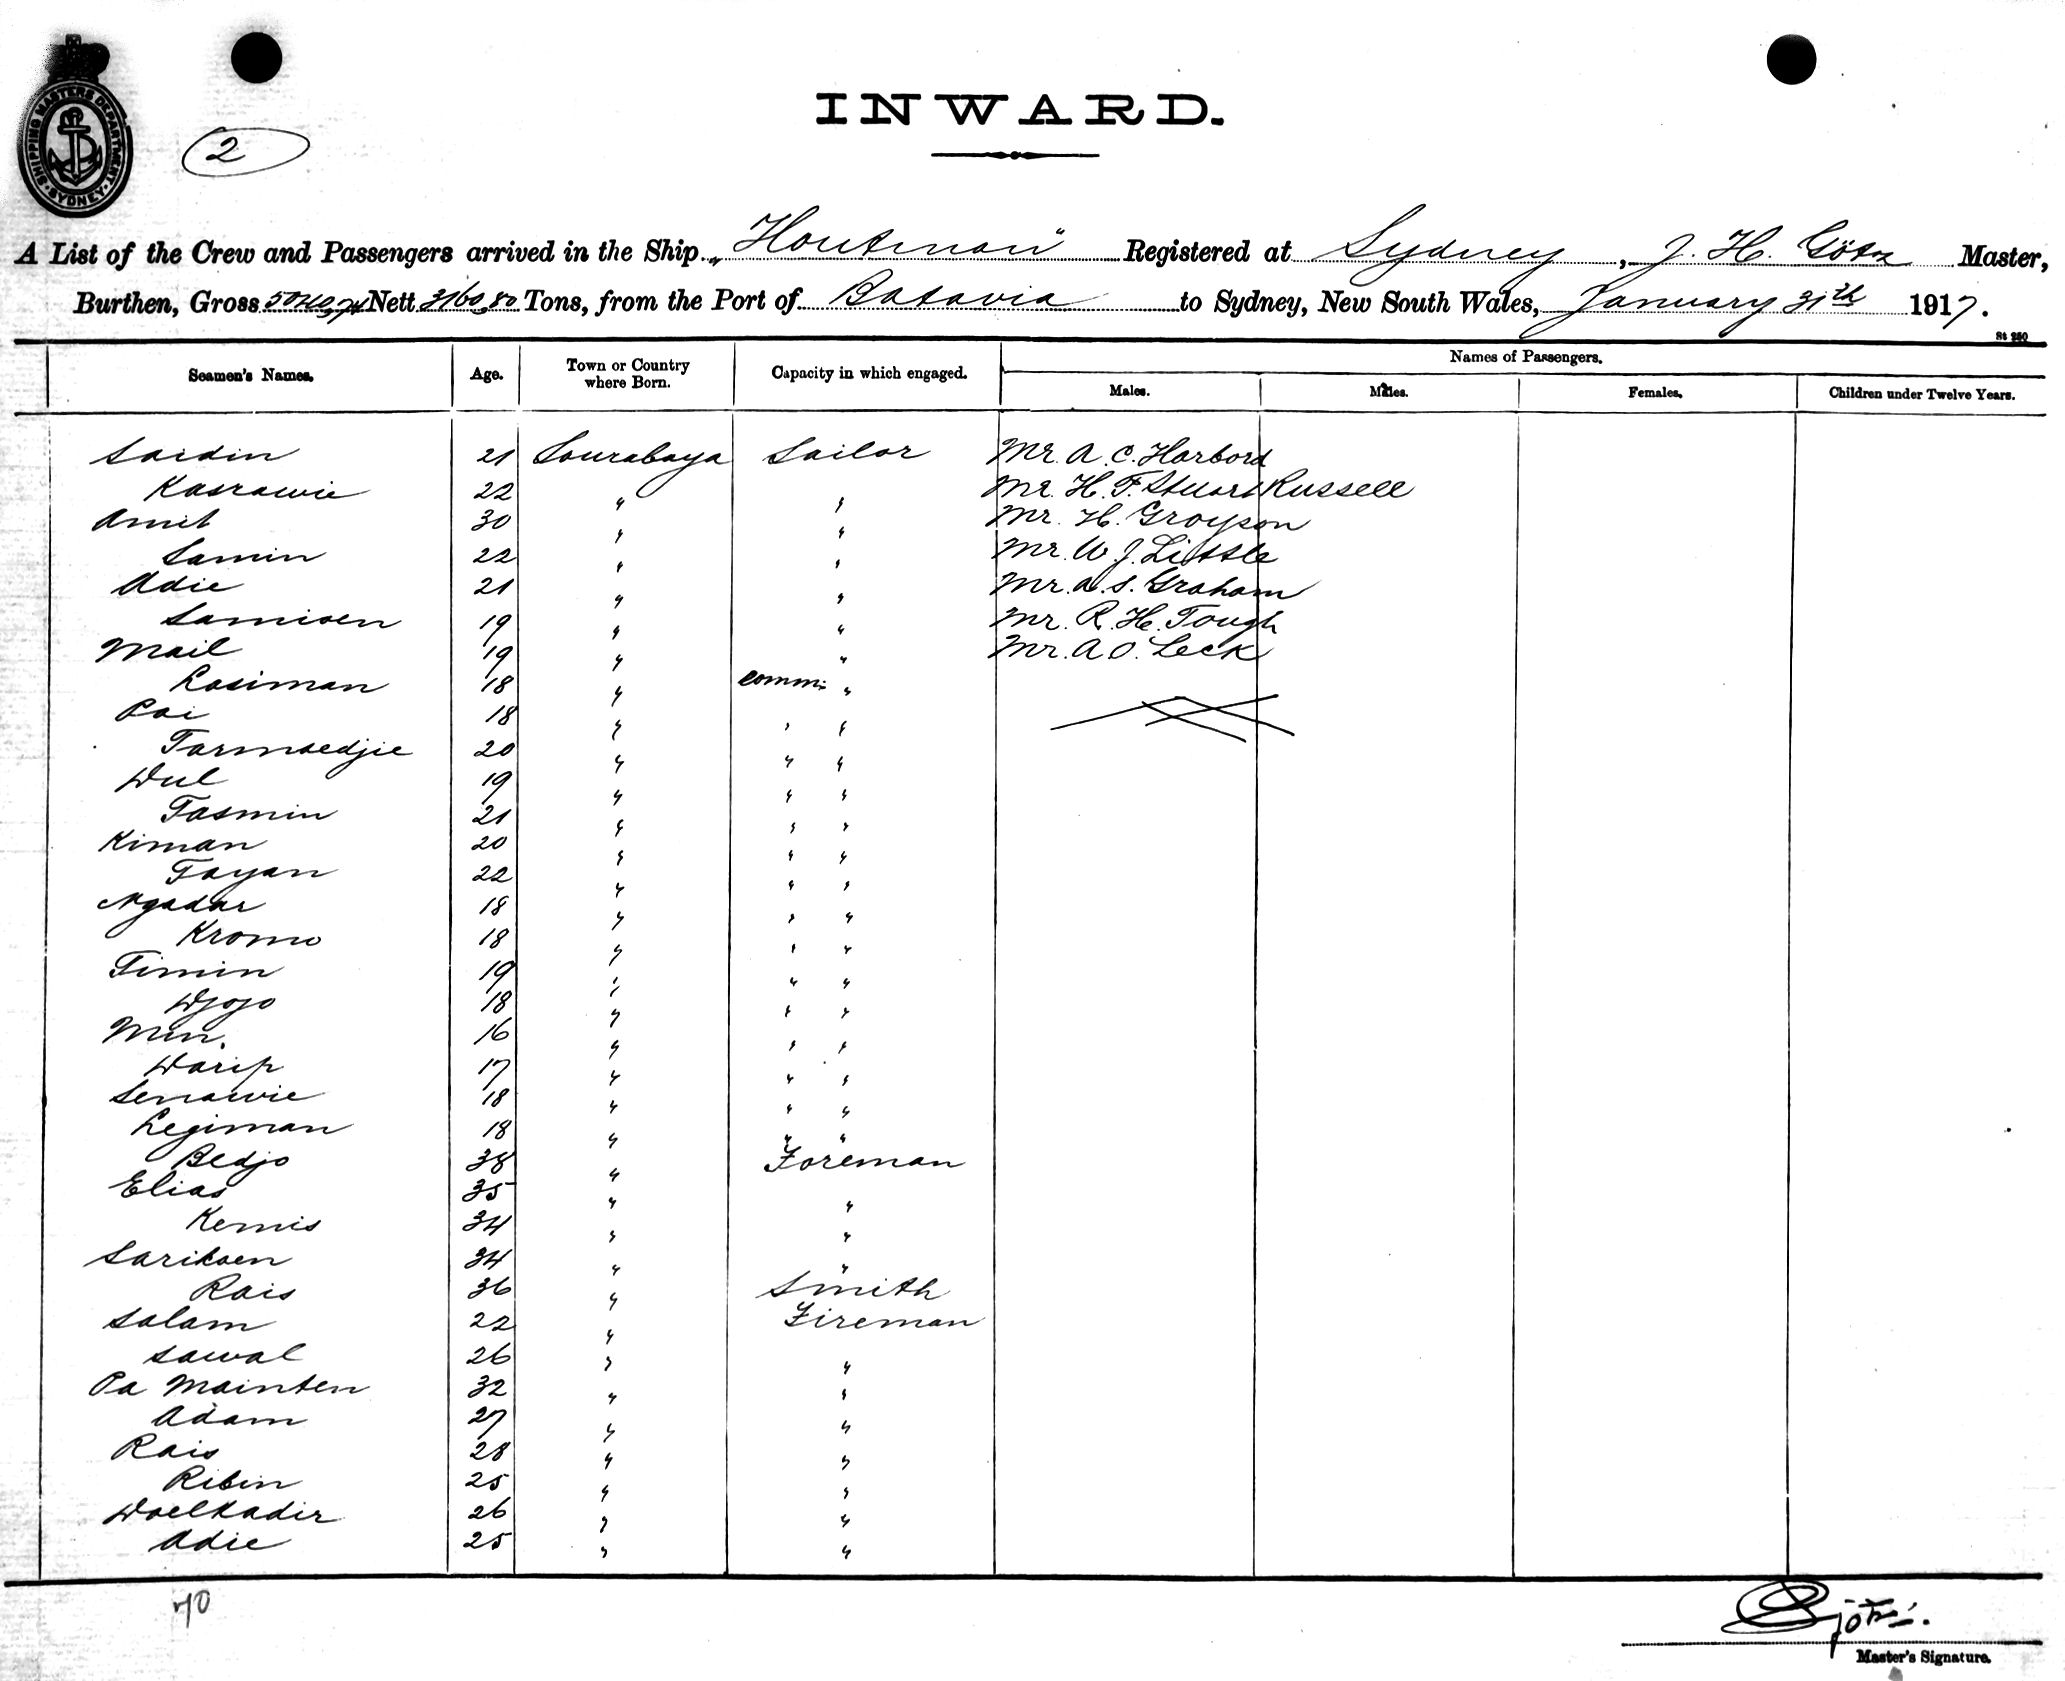 SHIPPING MASTERS DEPARTMENT · SYDNEY ·
2
INWARD.
A List of the Crew and Passengers arrived in the Ship „Houtman" Registered at Sydney, J. H. Götz Master,
Burthen, Gross Nett 3160,80 Tons, from the Port of Batavia to Sydney, New South Wales, January 31th 1917.
St 250
Seamen's Names. Age. Town or Country where Born. Capacity in which engaged. Names of Passengers.
Males. Males. Females. Children under Twelve Years.
Saidin 21 Sourabaya Sailor Mr. A. C. Harbord
Kasrawie 22 " " Mr. H. F. Stuart Russell
Amit 30 " " Mr. H. Grayson
Samin 22 " " Mr. W. J. Little
Adie 21 " " Mr. A. S. Graham
Samioen 19 " " Mr. R. H. Tough
Mail 19 " " Mr. A. O. Leck
Rasiman 18 " comm: "
Pai 18 " " "
Tarmoedjie 20 " " "
Wul 19 " " "
Tasmin 21 " " "
Kiman 20 " " "
Tayan 22 " " "
Ngadar 18 " " "
Kromo 18 " " "
Timin 19 " " "
Djojo 18 " " "
Min. 16 " " "
Warip 17 " " "
Senawie 18 " " "
Legiman 18 " " "
Bedjo 38 " Foreman
Elias 35 " "
Kemis 34 " "
Sariksen 34 " "
Rais 36 " Smith
Salam 22 " Fireman
Sawal 26 " "
Pa Mainten 32 " "
Adam 27 " "
Rais 28 " "
Ribin 25 " "
Doelkadir 26 " "
Adie 25 " "
70
Götz.
Master's Signature.